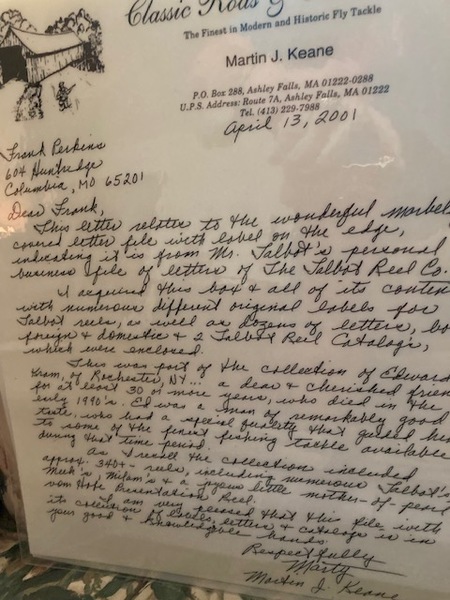 Classic Rods &
The Finest in Modern and Historic Fly Tackle
Martin J. Keane
P.O. Box 288, Ashley Falls, MA 01222-0288
U.P.S. Address: Route 7A, Ashley Falls, MA 01222
Tel. (413) 229-7988
April 13, 2001
Frank Perkins
604 Huntridge
Columbia, MO 65201
Dear Frank,
This letter relates to the wonderful
covered letter file with label on the edge,
indicating it is from Mr. Talbot's personal
business file of letters of The Talbot Reel Co.
I acquired this box & all of its
with numerous different original labels for
Talbot reels, as well as dozens of letters,
foreign & domestic & 2 Talbot Reel Catalogs,
which were enclosed.
This was part of the collection of Edward
of Rochester, NY... a dear & cherished
for at least 30 or more years, who died in the
early 1990's. Ed was a man of remarkably good
taste, who had a special quality that guided
to some of the finest fishing tackle available
during that time period.
As I recall the collection included
approx. 340+ reels, including numerous Talbot's
Meek's, Milam's & a little mother-of-pearl
vom Hofe Presentation Reel.
I am very pleased that this file with
its collection of labels, letters & catalogs is in
your good & knowledgible hands.
Respectfully
Marty
Martin J. Keane